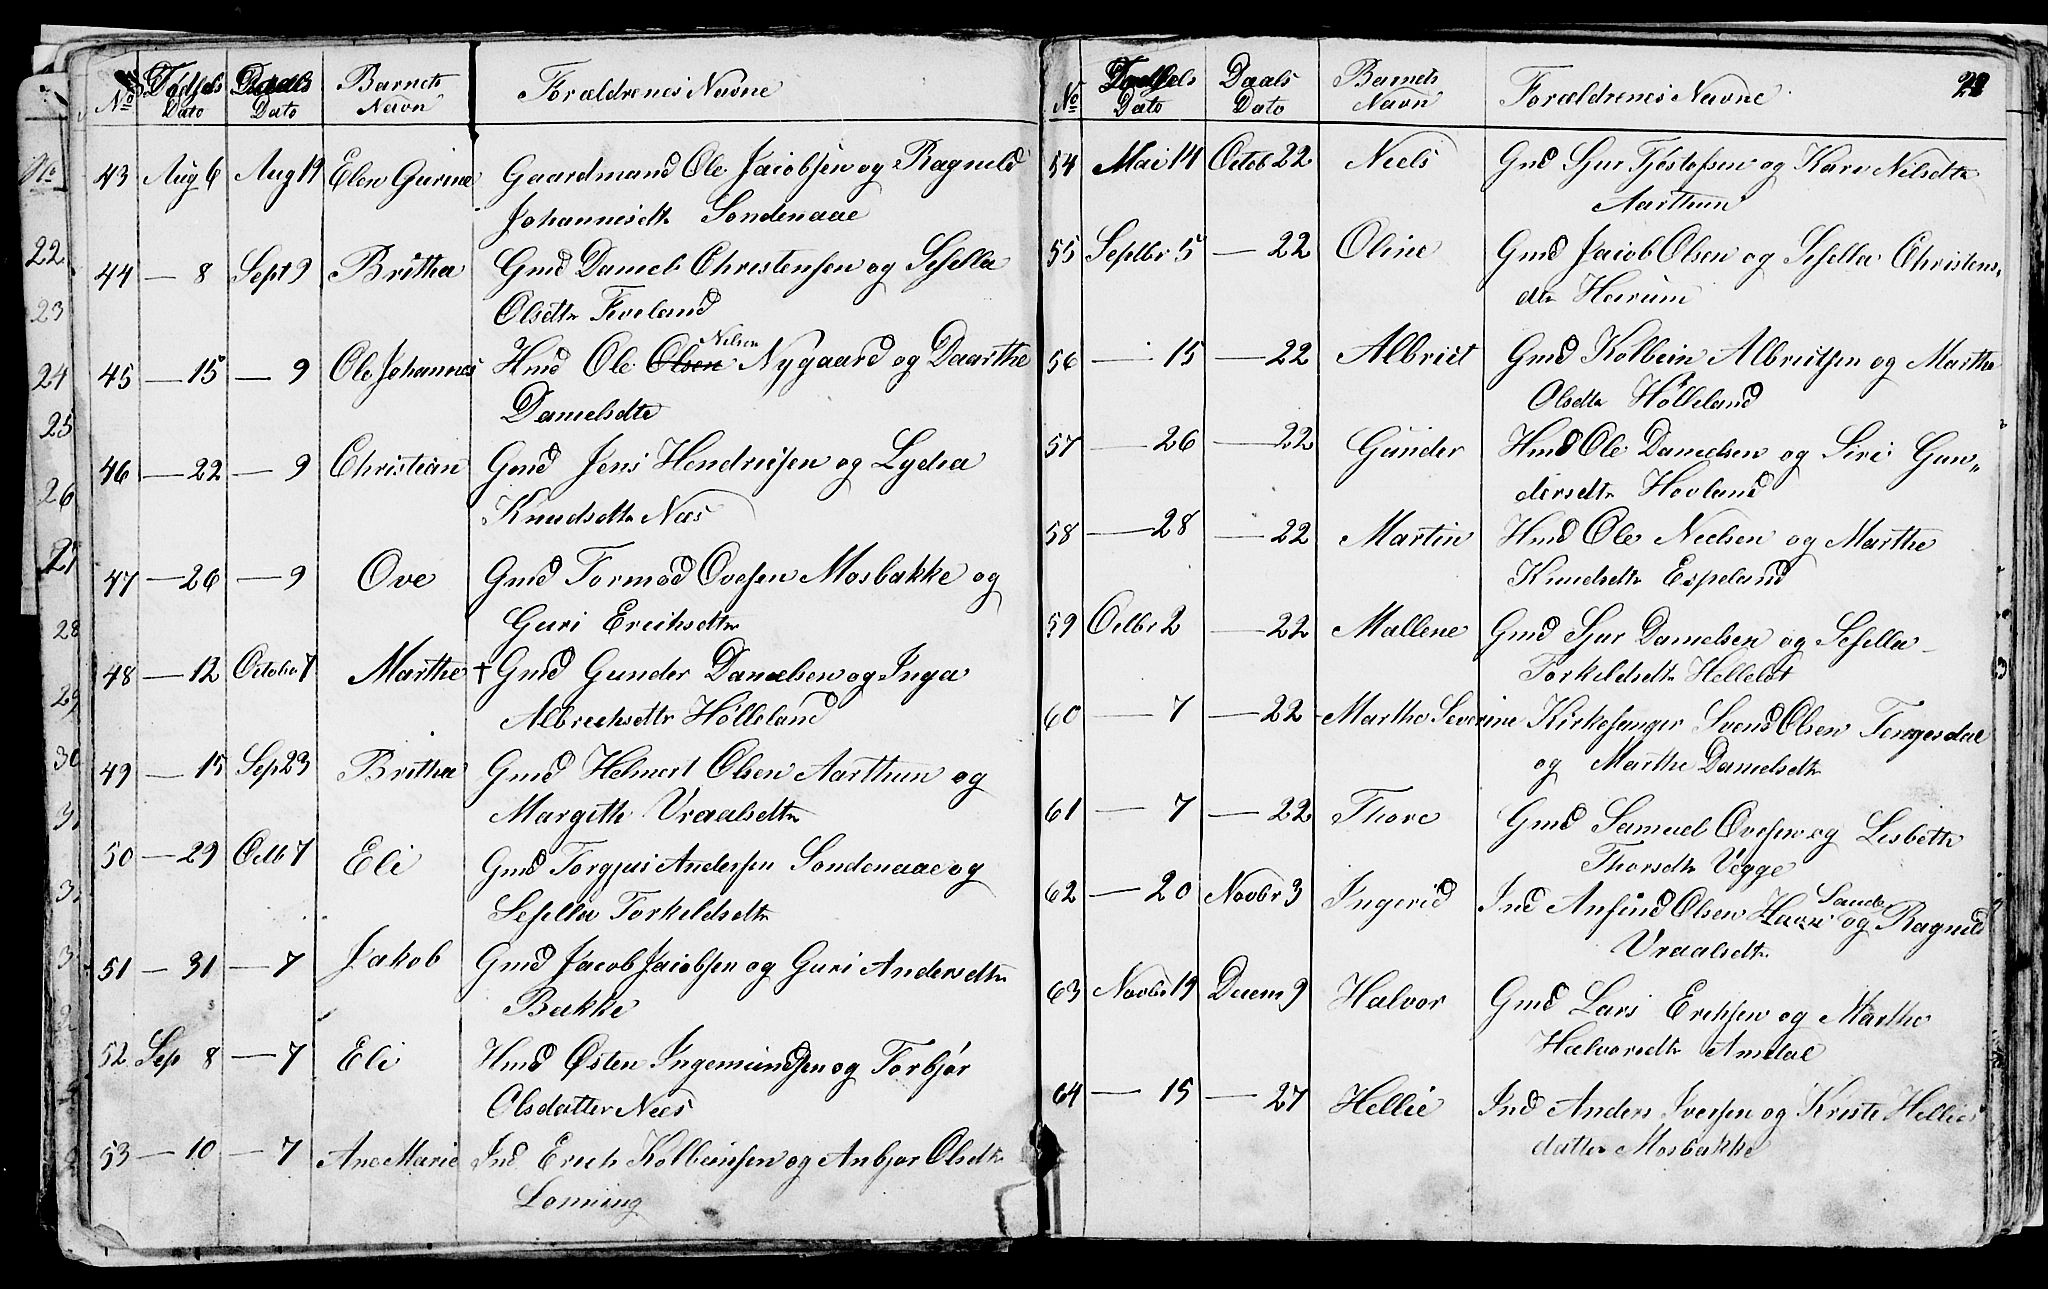 No Fødsels Dato Daabs Dato Barnets Navn Forældrenes Navne
43 Aug 6 Aug 19 Elen Gurine Gaardmand Ole Jacobsen og Ragnild
Johannesdtr Søndenaae
44 — 8 Sept 9 Britha Gmd Daniel Christensen og Sesella
Olsdtr Foveland
45 — 15 — 9 Ole Johannes Hmd Ole Olsen Nilsen Nygaard og Daarthe
Danielsdtr
46 — 22 — 9 Christian Gmd Jens Hendricsen og Lydia
Knudsdtr Næs
47 — 26 — 9 Ove Gmd Tormod Ovesen Mosbakke og
Guri Ericksdtr
48 — 12 Octobr 7 Marthe † Gmd Gunder Danielsen og Inga
Albrechsdtr Hølleland
49 — 15 Sep 23 Britha Gmd Helmert Olsen Aarthun og
Margithe Vraalsdtr
50 — 29 Octb 7 Eli Gmd Torgjus Andersen Søndenaae og
Sesella Torkeldsdtr
51 — 31 — 7 Jakob Gmd Jacob Jacobsen og Guri Andersdtr
Bakke
52 Sep 8 — 7 Eli Hmd Østen Ingemundsen og Torbjør
Olsdatter Nees
53 — 10 — 7 Ane Marie Ind Erich Kolbeinsen og Anbjor Olsdtr
Lonning
No Fødsels Dato Daabs Dato Barnets Navn Forældrenes Navne
54 Mai 14 Octob 22 Neels Gmd Sjur Tjostofsen og Kari Nilsdtr
Aarthun
55 Septbr 5 — 22 Oline Gmd Jacob Olsen og Sesella Christens-
dtr Haarum
56 — 15 — 22 Albrict Gmd Kolbein Albrictsen og Marthe
Olsdtr Hølleland
57 — 26 — 22 Gunder Hmd Ole Danielsen og Siri Gun„
dersdtr Hovland
58 — 28 — 22 Martin Hmd Ole Neelsen og Marthe
Knudsdtr Espeland
59 Octbr 2 — 22 Mallene Gmd Sjur Danielsen og Sesella
Torkeldsdtr Helleløt
60 — 7 — 22 Marthe Severine Kirkesanger Svend Olsen Tengesdal
og Marthe Danielsdtr
61 — 7 — 22 Thore Gmd Samuel Ovesen og Lisbeth
Thorsdtr Vegge
62 — 20 Novbr 3 Ingerid Ind Anfind Olsen Sande og Ragnild
Vraalsdtr
63 Novbr 19 Decem 9 Halvor Gmd Lars Ericksen og Marthe
Halvorsdtr Amdal
64 — 15 — 27 Hellie Ind Anders Iversen og Kristi Hellies
datter Mosbakke
No
22
23
24
25
26
27
28
29
30